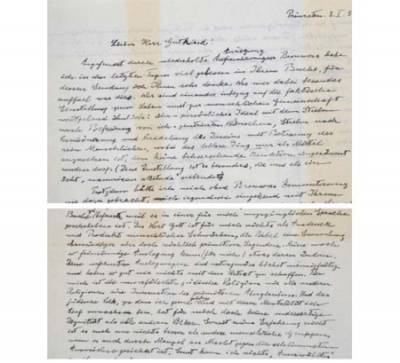 Princeton. 3. I. 5
Lieber Herr Gutkind!
Angefeuert durch wiederholte Anregung Brouwers habe
ich in den letzten Tagen viel gelesen in Ihrem Buche, für
dessen Sendung ich Ihnen sehr danke. Was mir dabei besonders
auffiel war dies. Wir sind einander inbezug auf die faktische
Einstellung zum Leben und zur menschlichen Gemeinschaft
weitgehend ähnlich: über-persönliches Ideal mit dem Streben
nach Befreiung von ich-zentrierten Wünschen, Streben nach
Verschönerung und Veredelung des Daseins mit Betonung des
rein Menschlichen, wobei das leblose Ding nur als Mittel
anzusehen ist, dem keine beherrschende Funktion eingeräumt
werden darf. (Diese Einstellung ist es besonders, die uns als ein
echt "unamerican attitude" verbindet)
Trotzdem hätte ich mich ohne Brouwers Ermunterung
nie dazu gebracht, mich irgendwie eingehend mit Ihrem
Buche zu befassen, weil es in einer für mich unzugänglichen Sprache
geschrieben ist. Das Wort Gott ist für mich nichts als Ausdruck
und Produkt menschlicher Schwächen, die Bibel eine Sammlung
ehrwürdiger aber doch reichlich primitiver Legenden. Keine noch
so feinsinnige Auslegung kann (für mich) etwas daran ändern.
Diese verfeinerten Auslegungen sind naturgemäss höchst mannigfaltig
und haben so gut wie nichts mit dem Urtext zu schaffen. Für
mich ist die unverfälschte jüdische Religion wie alle anderen
Religionen eine Incarnation des primitiven Aberglaubens. Und das
jüdische Volk, zu dem ich gerne gehöre und mit dessen Mentalität ich
tief verwachsen bin, hat für mich doch keine andersartige
Dignität als alle anderen Völker. Soweit meine Erfahrung reicht
ist es auch um nichts besser als andere menschliche Gruppen
wenn es auch durch Mangel an Macht gegen die schlimmsten
Auswüchse gesichert ist. Sonst kann ich nichts "Auserwähltes"